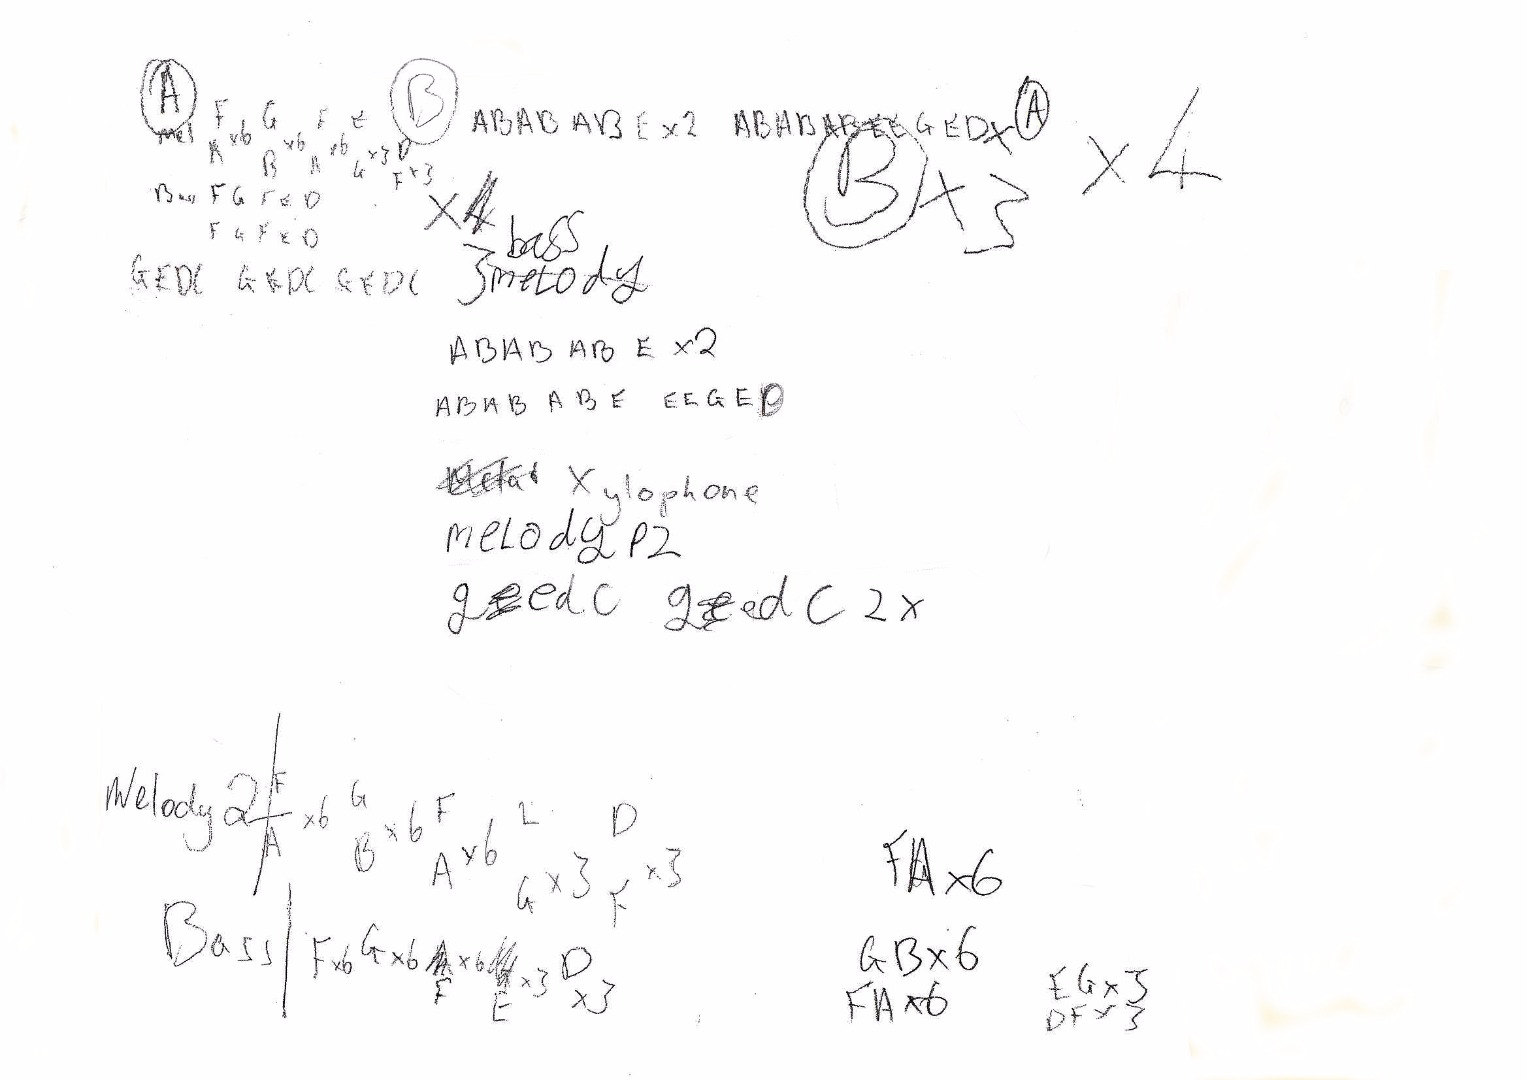 A
mel F G F E
x6 x6 x6 x3 D
A B A G F x3
Bass F G F E D
F G F E D
x4
GEDC GEDC GEDC
B
ABAB ABE x2 ABABABEEEGEDx A
B x3
x4
bass
3melody
ABAB AB E x2
ABAB ABE EEGED
Xylophone
meLody P2
gedC gedC 2x
Melody 2 F x6 G x6 F x6 D
A B A G x3 F x3
Bass F x6 G x6 F x6 E x3 D x3
FA x6
GB x6
FA x6
EG x3
DF x3